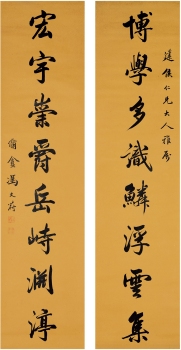 蓮儕仁兄大人雅屬
博學多識鱗浮雲集
宏宇崇爵岳峙淵渟
脩盦馮文蔚